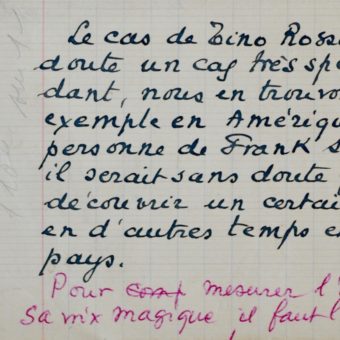 Le cas de Tino Ross
doute un cas très spé
dant, nous en trouvo
exemple en Amériqu
personne de Frank S
il serait sans doute
découvrir un certai
en d'autres temps e
pays.
Pour comp mesurer l'
sa voix magique il faut l